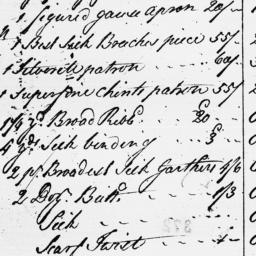 1 figured gause apron 20/-
1 Best Silk Breeches piece 55/
1 patron 60/
1 Superfine Chints patron 55/
1 1/4 yds Broad Ribb. 20
4 yds Silk binding 3
2 ps Broadest Silk Garthers 4/6
2 Doz. Butt. 1/3
Silk
Scarf Twist